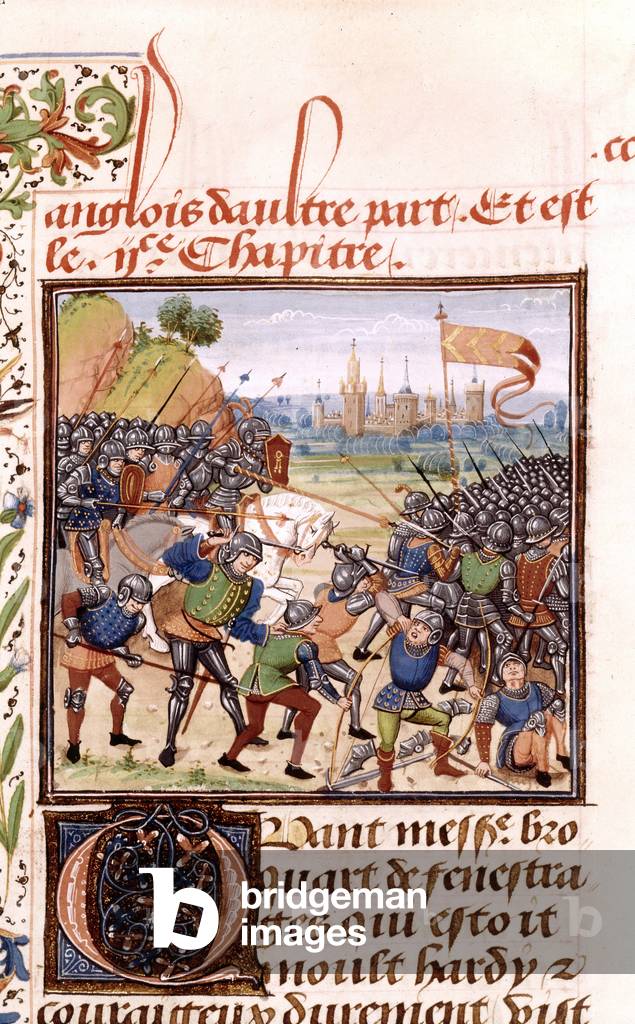 .cc
anglois daultre part. Et est
le. ijce. Chapitre.
Quant messre. bro
quart de fenestra
ges qui estoit
moult hardy z
courageux durement vist
bridgeman
images
b
b